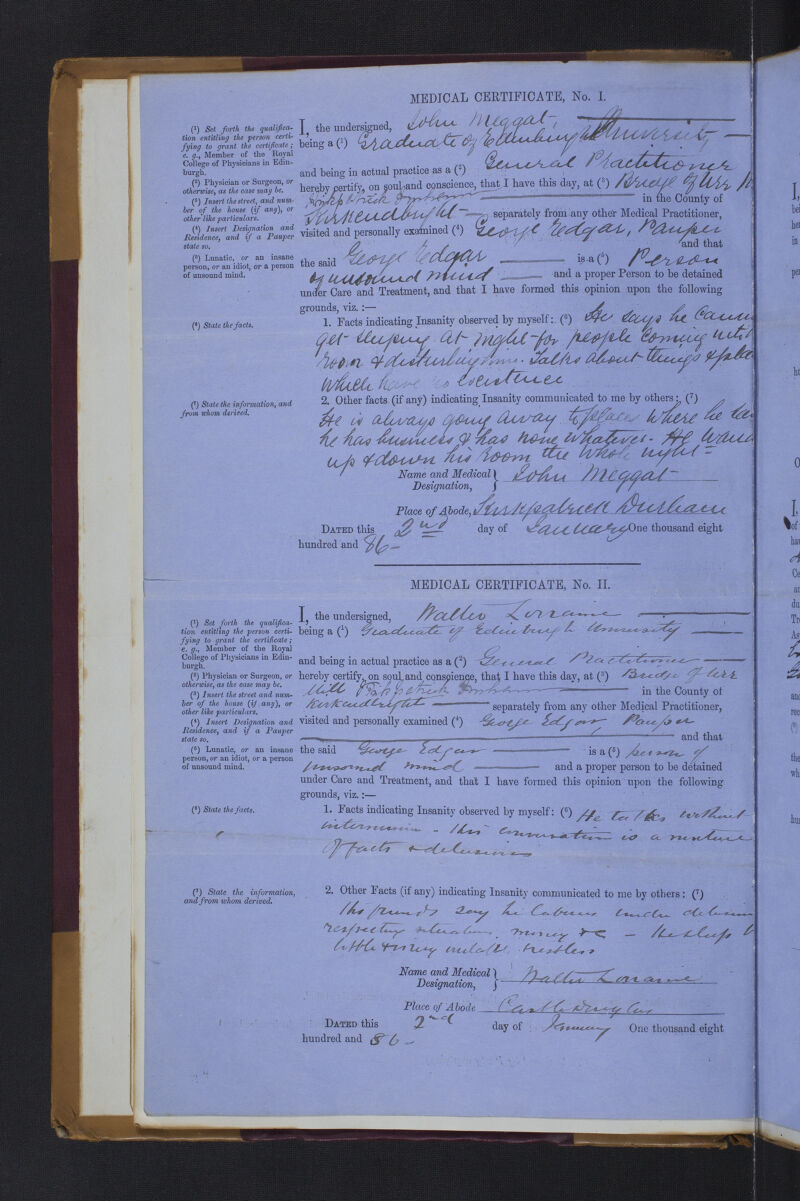 MEDICAL CERTIFICATE, No. I.
(1) Set forth the qualifica-
tion entitling the person certi-
fying to grant the certificate;
e. g., Member of the Royal
College of Physicians in Edin-
burgh.
(2) Physician or Surgeon, or
otherwise, as the case may be.
(3) Insert the street, and num-
ber of the house (if any), or
other like particulars.
(4) Insert Designation and
Residence, and if a Pauper
state so.
(5) Lunatic, or an insane
person, or an idiot, or a person
of unsound mind.
(6) State the facts.
(7) State the information, and
from whom derived.
I, the undersigned, John Meggat,
being a (1) Graduate of Edinburgh University
and being in actual practice as a (2) General Practitioner
hereby certify, on soul and conscience, that I have this day, at (3) Bridge of Urr
Kirkpatrick Durham in the County of
Kirkcudbright separately from any other Medical Practitioner,
visited and personally examined (4) George Edgar, Pauper
and that
the said George Edgar is a (5) Person
of unsound mind and a proper Person to be detained
under Care and Treatment, and that I have formed this opinion upon the following
grounds, viz. :—
1. Facts indicating Insanity observed by myself: (6) He says he
get sleeping at night for people coming
room & disturbing him. Talks about things &
which have no existence
2. Other facts (if any) indicating Insanity communicated to me by others:, (7)
He is always going away to places where he
he has business & has none whatever. He
up & down his room the whole night
Name and Medical Designation, } John Meggat
Place of Abode, Kirkpatrick Durham
DATED this 2nd day of January One thousand eight
hundred and 86
MEDICAL CERTIFICATE, No. II.
(1) Set forth the qualifica-
tion entitling the person certi-
fying to grant the certificate;
e. g., Member of the Royal
College of Physicians in Edin-
burgh.
(2) Physician or Surgeon, or
otherwise, as the case may be.
(3) Insert the street and num-
ber of the house (if any), or
other like particulars.
(4) Insert Designation and
Residence, and if a Pauper
state so.
(5) Lunatic, or an insane
person, or an idiot, or a person
of unsound mind.
(6) State the facts.
(7) State the information,
and from whom derived.
I, the undersigned, Walter Lorraine
being a (1) Graduate of Edinburgh University
and being in actual practice as a (2) General Practitioner
hereby certify, on soul and conscience, that I have this day, at (3) Bridge of Urr
Mill Kirkpatrick Durham in the County of
Kirkcudbright separately from any other Medical Practitioner,
visited and personally examined (4) George Edgar, Pauper
and that
the said George Edgar is a (5) person of
unsound mind and a proper person to be detained
under Care and Treatment, and that I have formed this opinion upon the following
grounds, viz. :—
1. Facts indicating Insanity observed by myself: (6) He talks without
intermission - His conversation is a mixture
of facts & delusions
2. Other Facts (if any) indicating Insanity communicated to me by others: (7)
His friends say he labours under
respecting money &c - He sleeps
little restless
Name and Medical Designation, } Walter Lorraine
Place of Abode Castle Douglas
DATED this 2nd day of January One thousand eight
hundred and 86